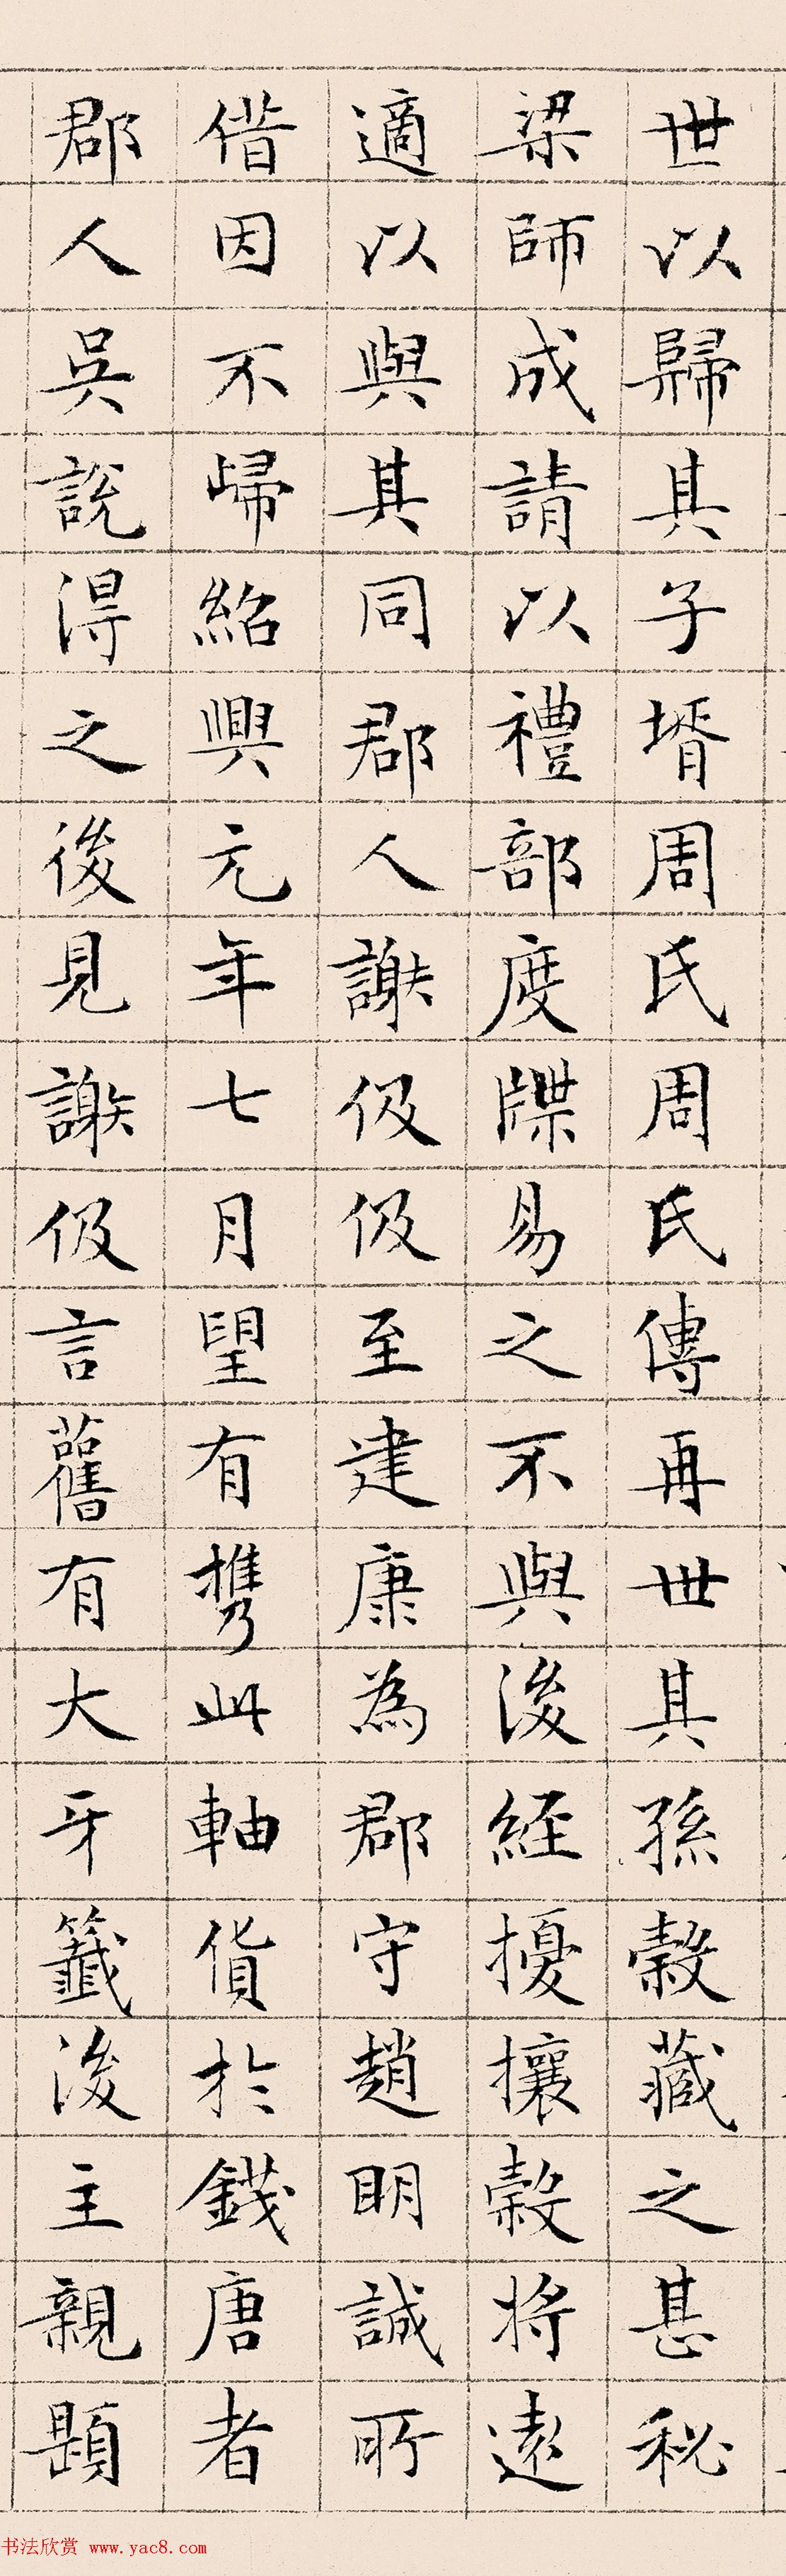 世以歸其子壻周氏周氏傳再世其孫穀藏之甚秘
梁師成請以禮部度牒易之不與後經擾攘穀將遠
適以與其同郡人謝伋伋至建康為郡守趙明誠所
借因不歸紹興元年七月望有攜此軸貨於錢唐者
郡人吳說得之後見謝伋言舊有大牙籤後主親題
书法欣赏 www.yac8.com